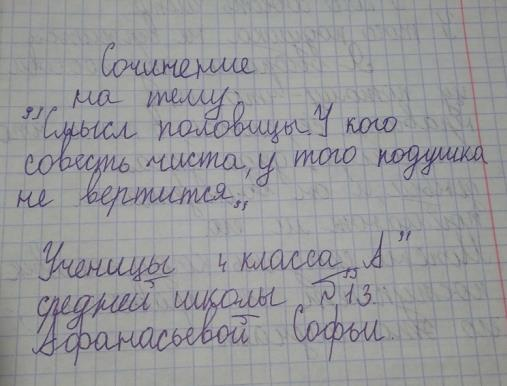 Сочинение
на тему
"Смысл половицы У кого
совесть чиста, у того подушка
не вертится"
Ученицы 4 класса "А"
средней школы №13
Афанасьевой Софьи